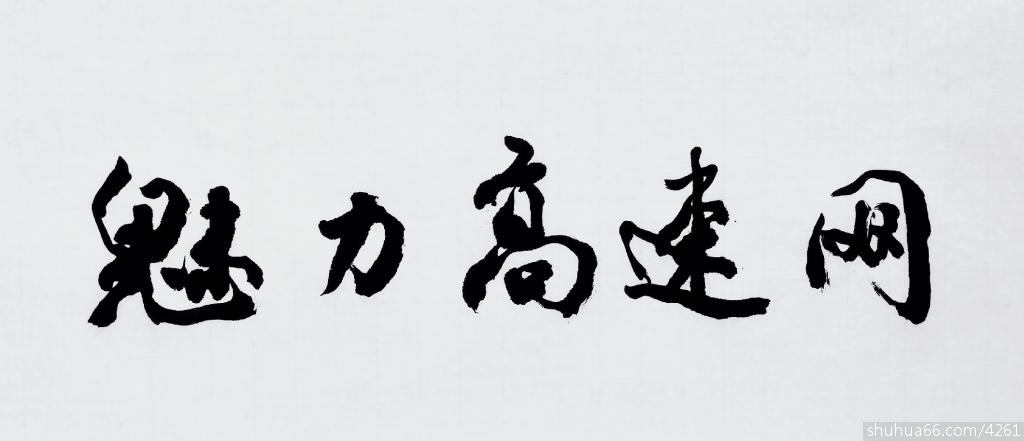 魅力高速网
shuhua66.com/4261